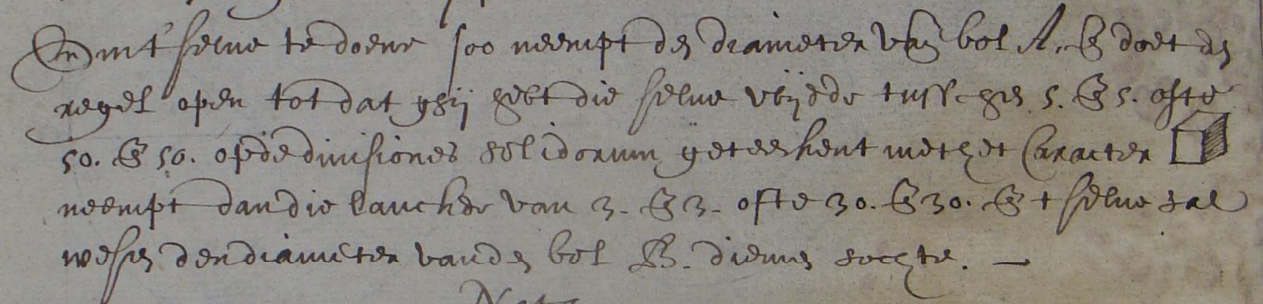 Om t' selve te doene soo neempt den diameter van bol A. & doet den
regel open tot dat ghij hebt die selve wijdde tusschen 5. & 5. ofte
50. & 50. op de divisiones solidorum geteekent met het Caracter
neempt dan die lanckde van 3. & 3. ofte 30. & 30. & t selve sal
wesen den diameter vanden bol B. diemen sochte. —